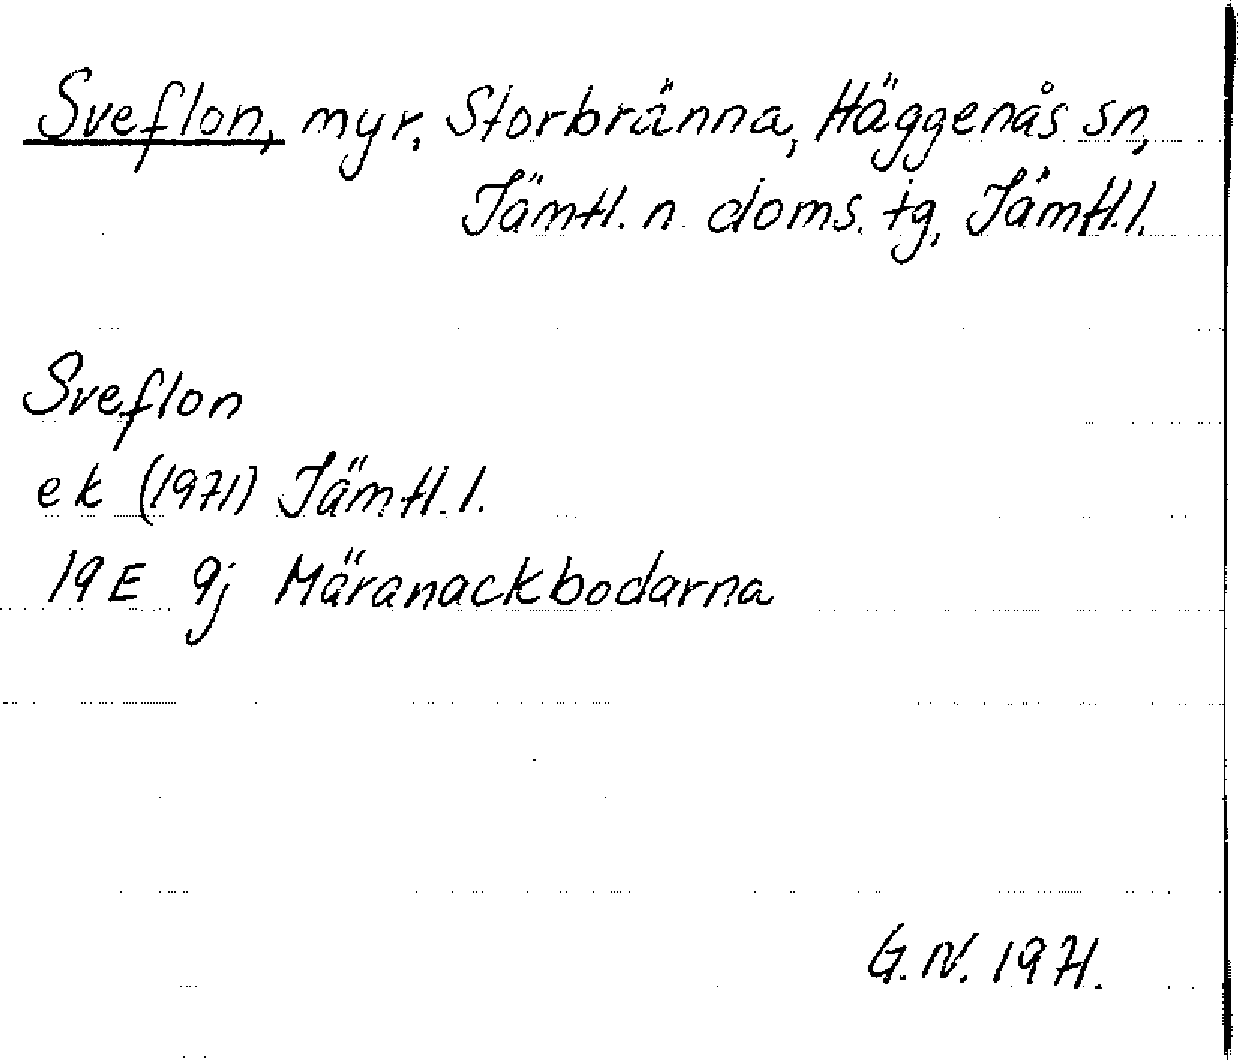 Sveflon, myr, Storbränna, Häggenås sn,
Jämtl. n. doms. tg, Jämtl. l.
Sveflon
ek (1971) Jämtl. l.
19E 9j Märanackbodarna
G.N. 1971.